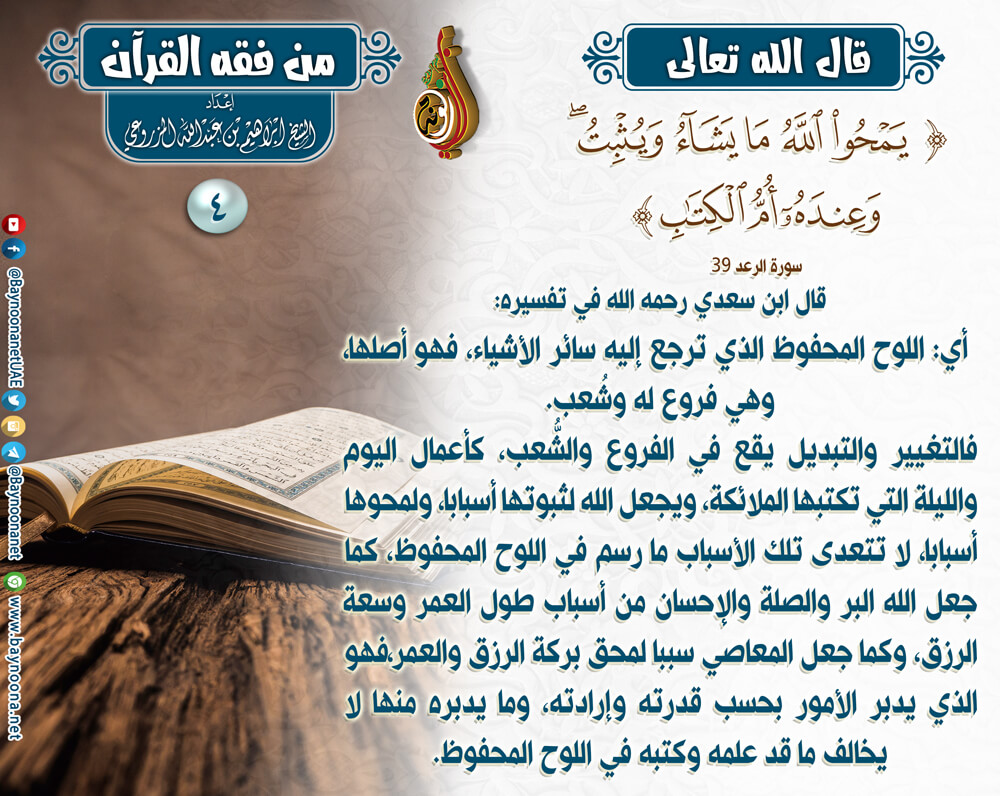 قال الله تعالى
من فقه القرآن
إعداد
الشيخ ابراهيم بن عبدالله المزروعي
٤
﴿ يَمْحُوا۟ ٱللَّهُ مَا يَشَآءُ وَيُثْبِتُ ۖ
وَعِندَهُۥٓ أُمُّ ٱلْكِتَـٰبِ ﴾
سورة الرعد 39
قال ابن سعدي رحمه الله في تفسيره:
أي: اللوح المحفوظ الذي ترجع إليه سائر الأشياء، فهو أصلها،
وهي فروع له وشُعب.
فالتغيير والتبديل يقع في الفروع والشُّعب، كأعمال اليوم
والليلة التي تكتبها الملائكة، ويجعل الله لثبوتها أسبابا، ولمحوها
أسبابا، لا تتعدى تلك الأسباب ما رسم في اللوح المحفوظ، كما
جعل الله البر والصلة والإحسان من أسباب طول العمر وسعة
الرزق، وكما جعل المعاصي سببا لمحق بركة الرزق والعمر،فهو
الذي يدبر الأمور بحسب قدرته وإرادته، وما يدبره منها لا
يخالف ما قد علمه وكتبه في اللوح المحفوظ.
@BaynoonanetUAE
@Baynoonanet
www.baynoona.net